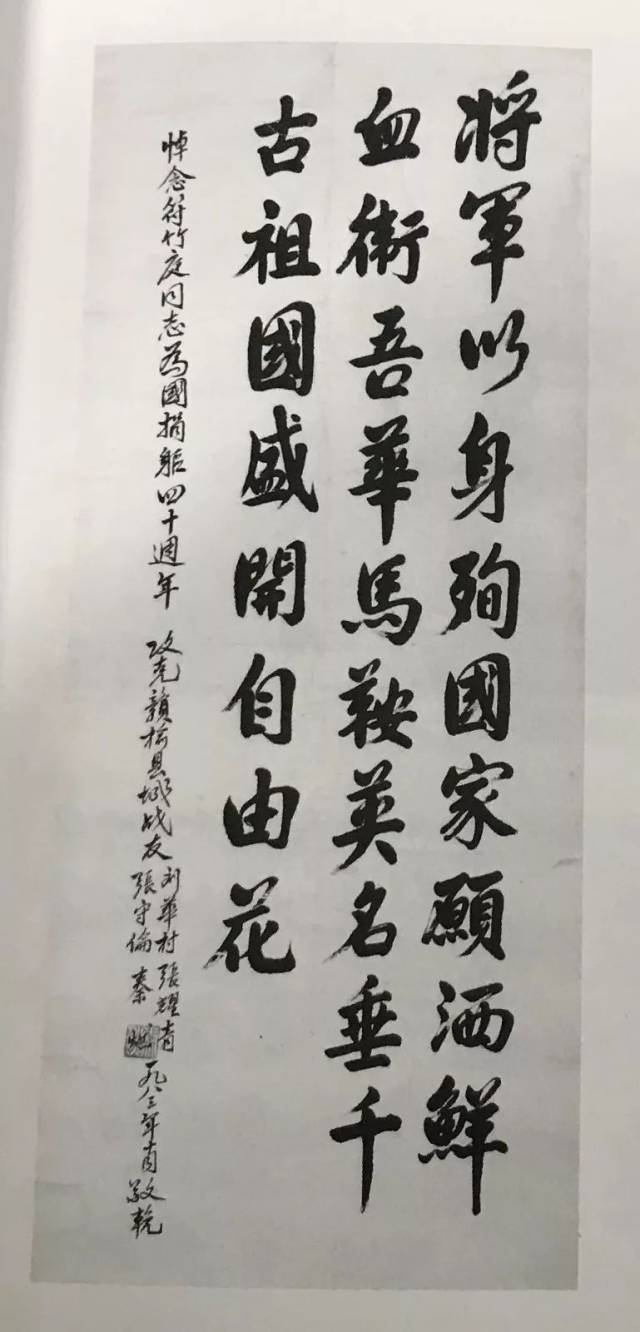 将軍以身殉國家願洒鮮
血衛吾華馬鞍英名垂千
古祖國盛開自由花
悼念符竹庭同志為國捐躯四十週年
攻克贛榆县城战友刘華村張耀青
張守倫秦
一九八三年 敬輓